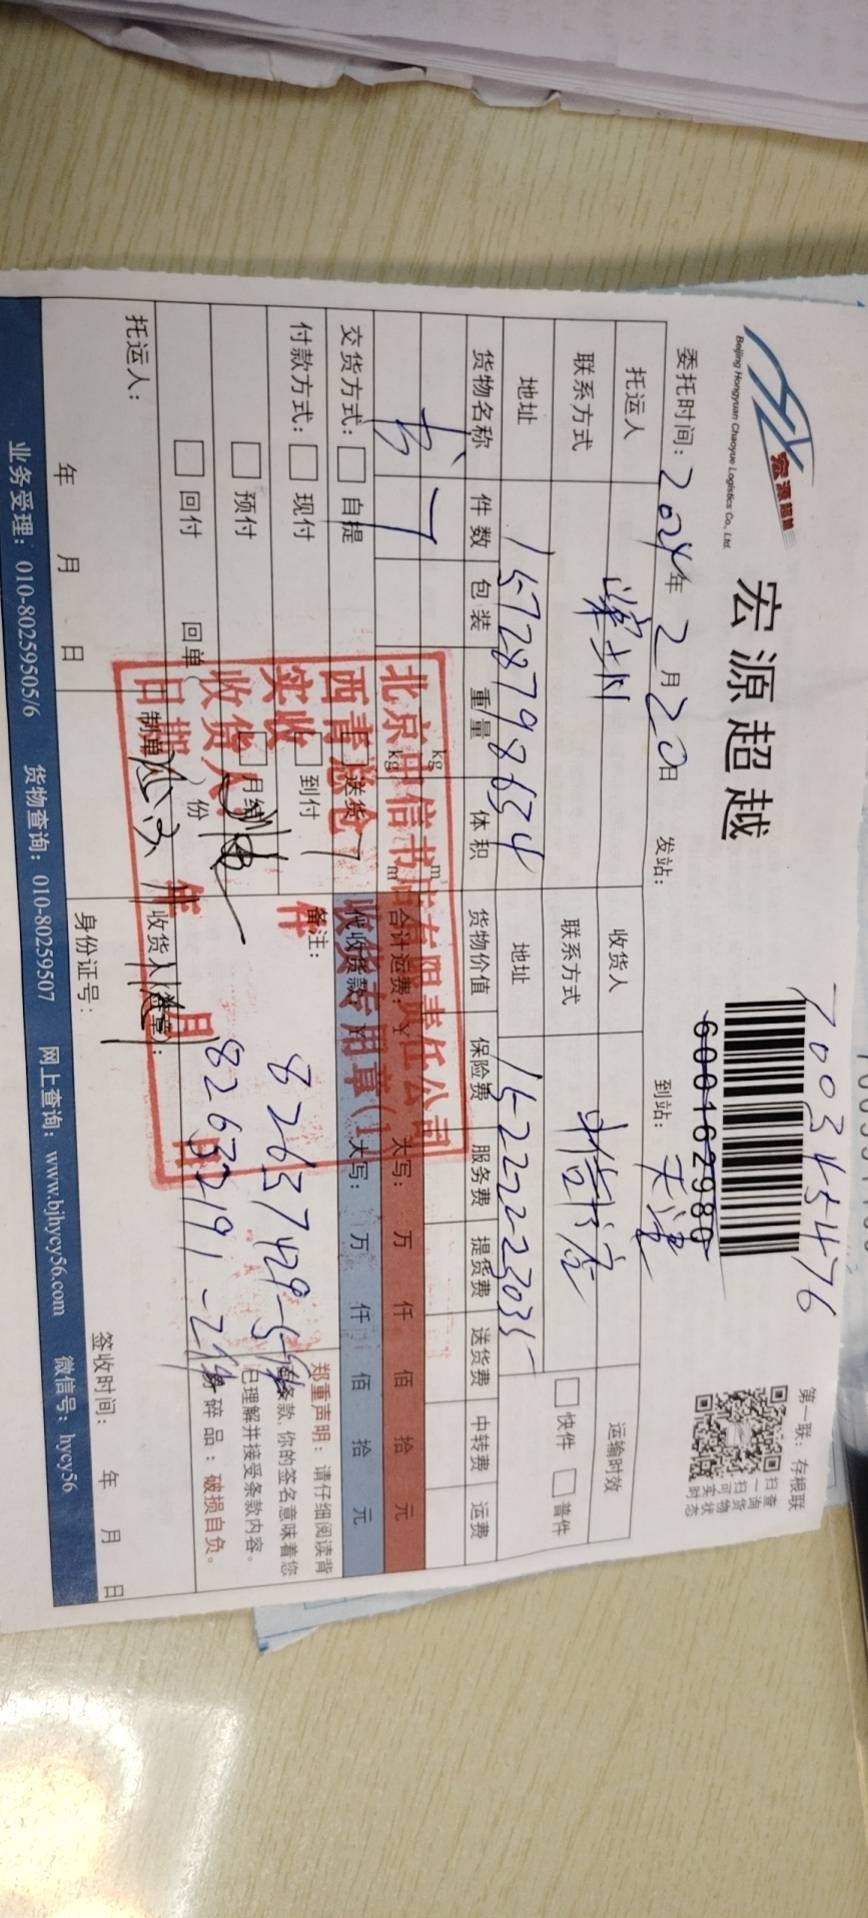 宏源超越
Beijing Hongyuan Chaoyue Logistics Co., Ltd.
宏源超越
70034545476
600162980
第一联：存根联
扫一扫
查询货物
可实时状态
委托时间：2024年2月20日 发站： 到站：天津
托运人 收货人 中信书店 运输时效
联系方式 15728798634 联系方式 15222223035 快件 普件
地址 地址
货物名称 件数 包装 重量 体积 货物价值 保险费 服务费 提货费 送货费 中转费 运费
书 7 kg m³
kg m³ 合计运费：￥ 大写： 万 仟 佰 拾 元
交货方式： 自提 送货 代收货款：￥ 大写： 万 仟 佰 拾 元
付款方式： 现付 到付 备注： 82637429-5件
预付 月结 82632191-2件
回付 回单（ ）份
郑重声明：请仔细阅读背
条款，你的签名意味着您
已理解并接受条款内容。
易碎品：破损自负。
托运人： 制单人： 收货人（签章）：
年 月 日 身份证号： 签收时间： 年 月 日
北京中信书店有限责任公司
西青总仓 收货专用章(1)
实收 7 件
收货人
日期 年 月 日
业务受理：010-80259505/6 货物查询：010-80259507 网上查询：www.bjhycy56.com 微信号：hycy56